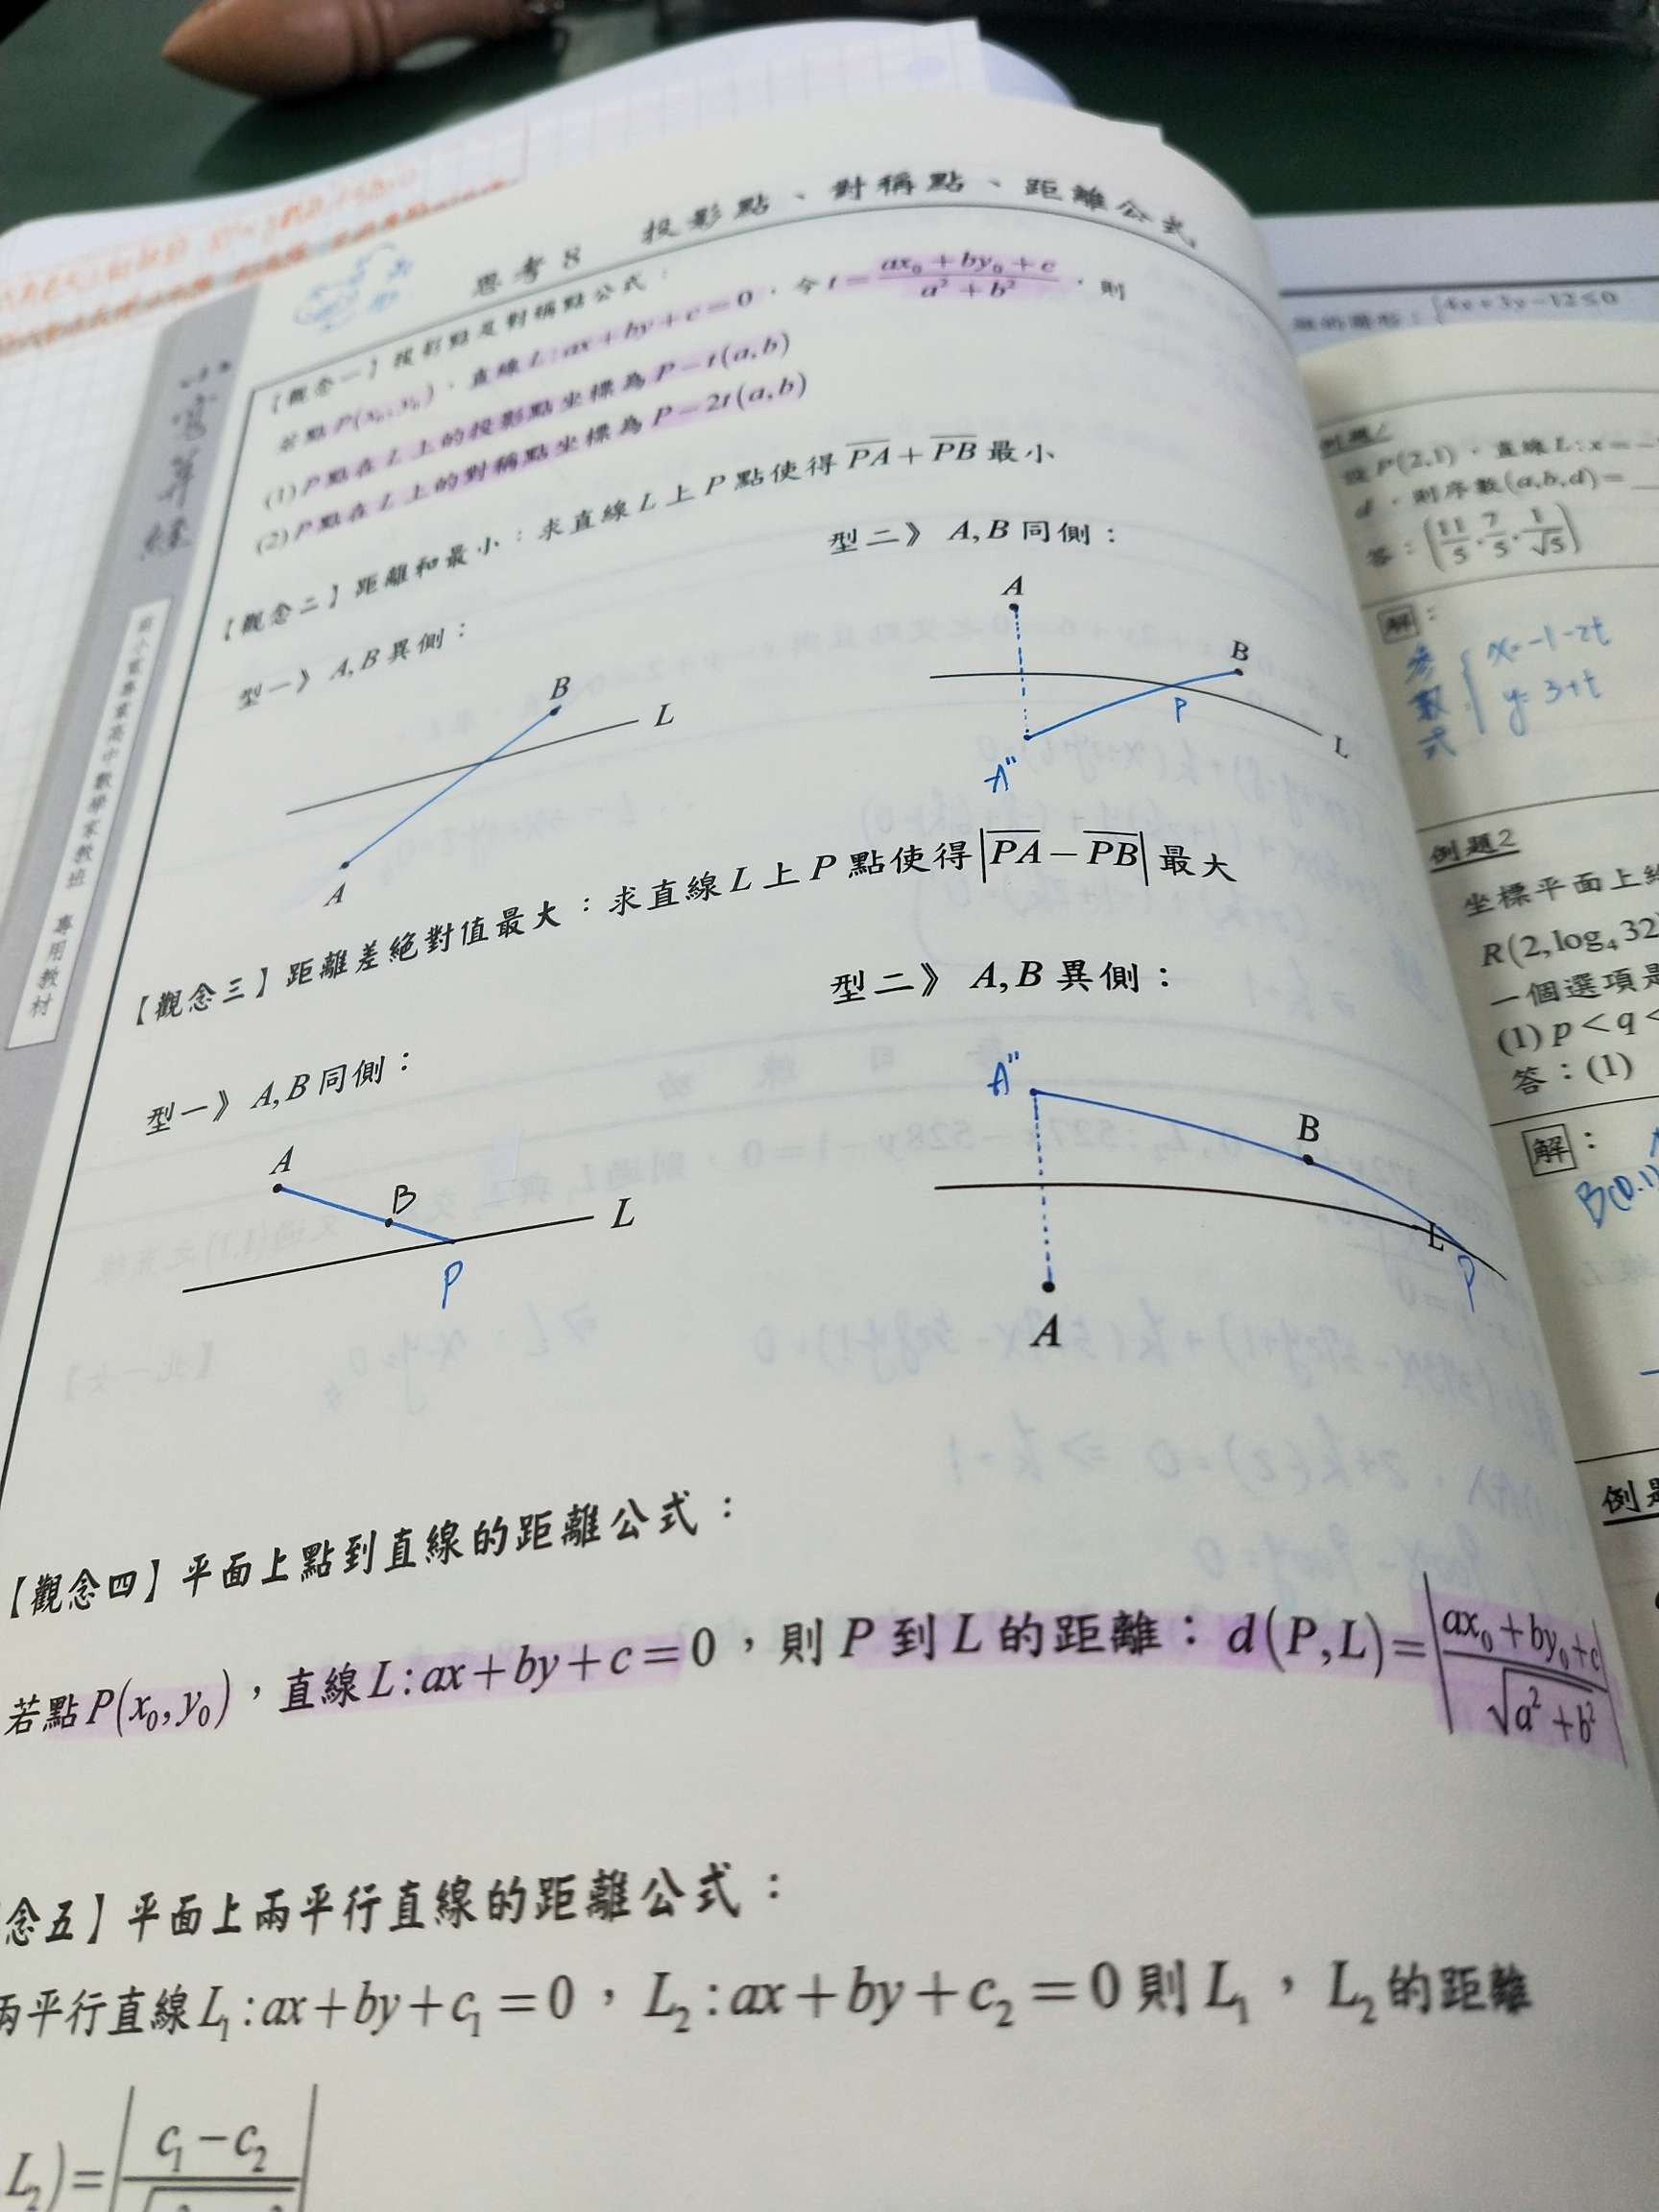 思考 8 投影點、對稱點、距離公式
【觀念一】投影點及對稱點公式：
若點 P(x₀, y₀)，直線 L: ax + by + c = 0，令 t = (ax₀ + by₀ + c)/(a² + b²)，則
(1) P 點在 L 上的投影點坐標為 P − t(a,b)
(2) P 點在 L 上的對稱點坐標為 P − 2t(a,b)
【觀念二】距離和最小：求直線 L 上 P 點使得 P̅A̅ + P̅B̅ 最小
型一》 A, B 異側：
型二》 A, B 同側：
B
L
A
A
B
P
L
A"
【觀念三】距離差絕對值最大：求直線 L 上 P 點使得 |P̅A̅ − P̅B̅| 最大
型一》 A, B 同側：
型二》 A, B 異側：
A
B
L
P
A"
B
L
P
A
【觀念四】平面上點到直線的距離公式：
若點 P(x₀, y₀)，直線 L: ax + by + c = 0，則 P 到 L 的距離：d(P, L) = |(ax₀ + by₀ + c)/√(a² + b²)|
念五】平面上兩平行直線的距離公式：
兩平行直線 L₁: ax + by + c₁ = 0，L₂: ax + by + c₂ = 0 則 L₁，L₂ 的距離
L₂) = |c₁ − c₂
專用教材
4x+3y−12≤0
設 P(2,1)，直線 L: x = −
d，則序數(a,b,d) = __
答：(11/5, 7/5, 1/√5)
解：
參數式 { x = −1−2t
y = 3+t
例題2
坐標平面上
R(2, log₄ 32
一個選項是
(1) p < q <
答：(1)
解：
B(0.1)
例